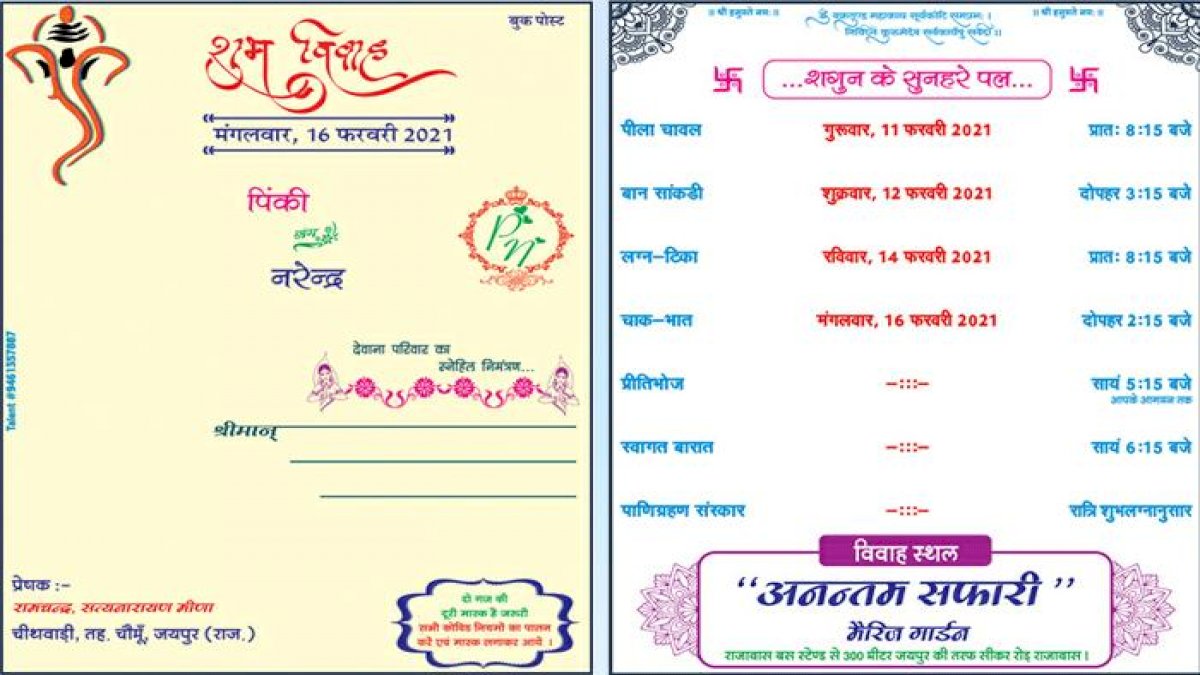 बुक पोस्ट
शुभ विवाह
मंगलवार, 16 फरवरी 2021
पिंकी
संग
नरेन्द्र
PN
देवाना परिवार का
स्नेहिल निमंत्रण...
श्रीमान्
Talent #9461357887
प्रेषक :-
रामचन्द्र, सत्यनारायण मीणा
चीथवाड़ी, तह. चौमूँ, जयपुर (राज.)
दो गज की
दूरी मास्क है जरूरी
सभी कोविड नियमों का पालन
करें एवं मास्क लगाकर आयें ।
॥ श्री हनुमते नमः ॥
ॐ वक्रतुण्ड महाकाय सूर्यकोटि समप्रभः ।
॥ श्री हनुमते नमः ॥
...शगुन के सुनहरे पल...
पीला चावल गुरूवार, 11 फरवरी 2021 प्रातः 8:15 बजे
बान सांकडी शुक्रवार, 12 फरवरी 2021 दोपहर 3:15 बजे
लग्न-टिका रविवार, 14 फरवरी 2021 प्रातः 8:15 बजे
चाक-भात मंगलवार, 16 फरवरी 2021 दोपहर 2:15 बजे
प्रीतिभोज -:::- सायं 5:15 बजे
आपके आगमन तक
स्वागत बारात -:::- सायं 6:15 बजे
पाणिग्रहण संस्कार -:::- रात्रि शुभलग्नानुसार
विवाह स्थल
“अनन्तम सफारी ”
मैरिज गार्डन
राजावास बस स्टेण्ड से 300 मीटर जयपुर की तरफ सीकर रोड़ राजावास ।